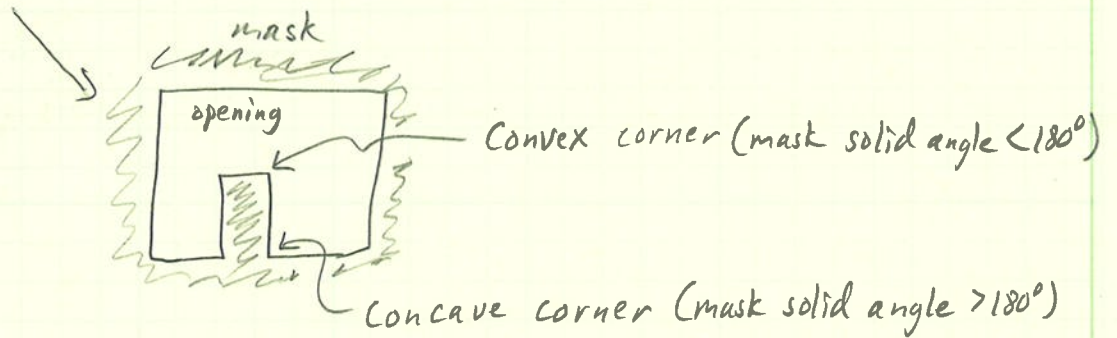 mask
opening
Convex corner (mask solid angle < 180°)
Concave corner (mask solid angle > 180°)